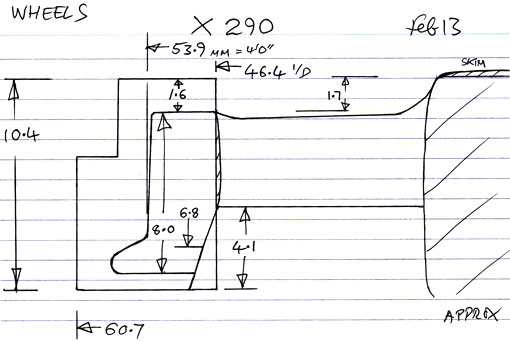 WHEELS
X 290
Feb 13
53.9 MM = 4'0"
46.4 I/D
SKIM
1.6
1.7
10.4
6.8
8.0
4.1
APPROX
60.7